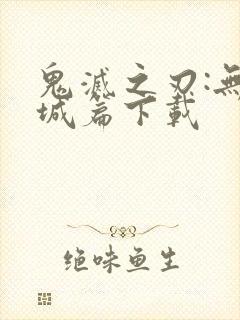 鬼滅之刃:無
城篇下載
绝味鱼生